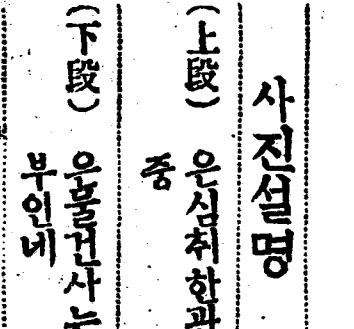 사진설명
(上段) 은심취한과
중
(下段) 은물건사는
부인네